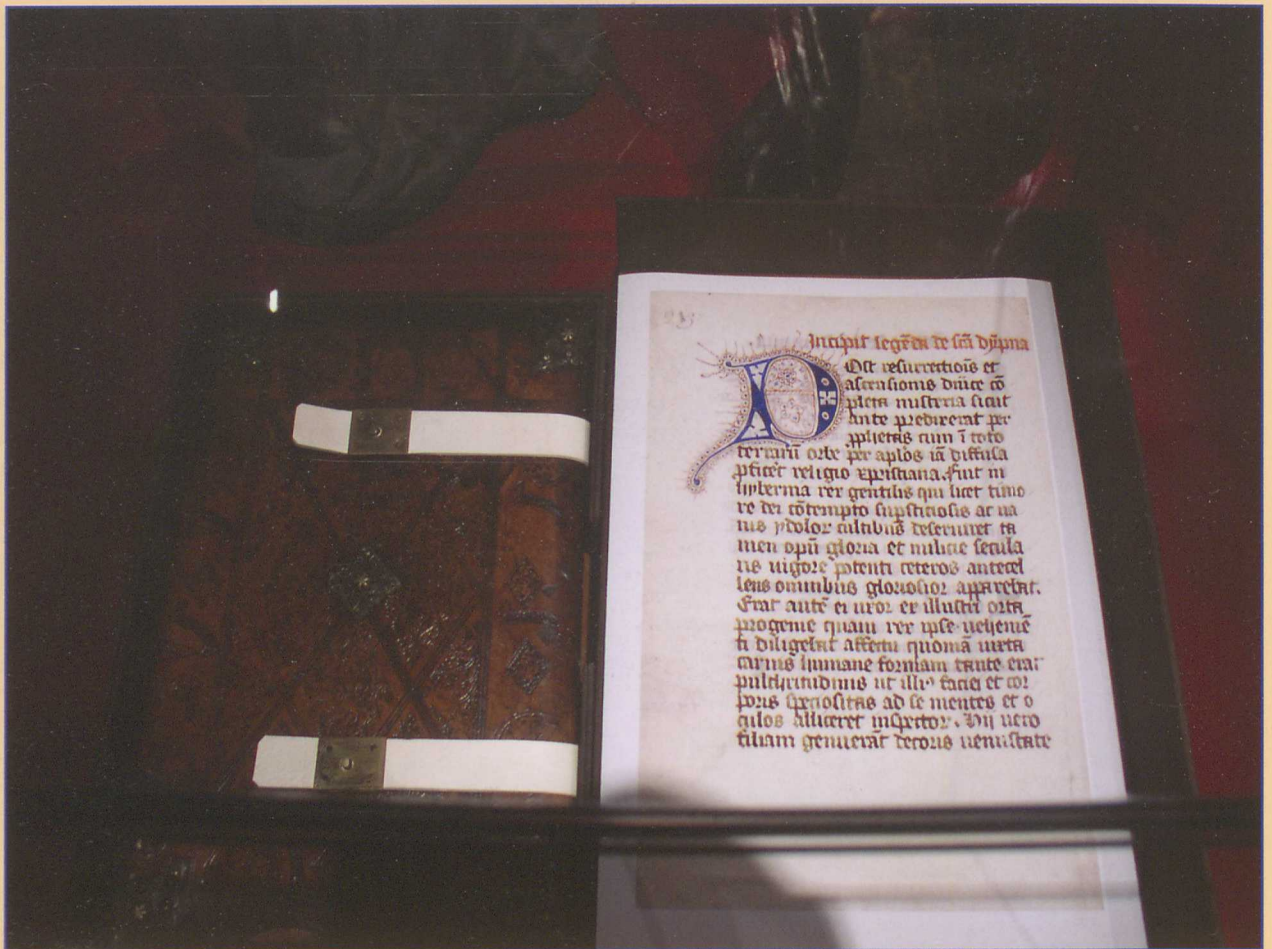 Incipit legēda de scā dȳpna
Post resurrectiōis et
ascensionis dn̄ice cō
pleta misteria sicut
ante predixerat per
ꝓphetas cum ī toto
terrarū orbe per aplōs iā diffusa
ꝓficēt religio xpristiana. Fuit in
hybernia rex gentilis qui licet timo
re dei cōtempto suꝑstitiosis ac ua
nis ydolor cultibus deseruiret ta
men opū gloria et milicie secula
ris uigore potenti ceteros antecel
lens omnibus gloriosior apparebat.
Erat autē ei uxor ex illustri orta
progenie quam rex ipse uehemē
ti diligebat affectu quoniā iuxta
carnis humane formam tante erat
pulchritudinis ut illiꝰ faciei et cor
poris speciositas ad se mentes et o
culos alliceret inspector. Hii uero
filiam genuerāt decoris uenustate